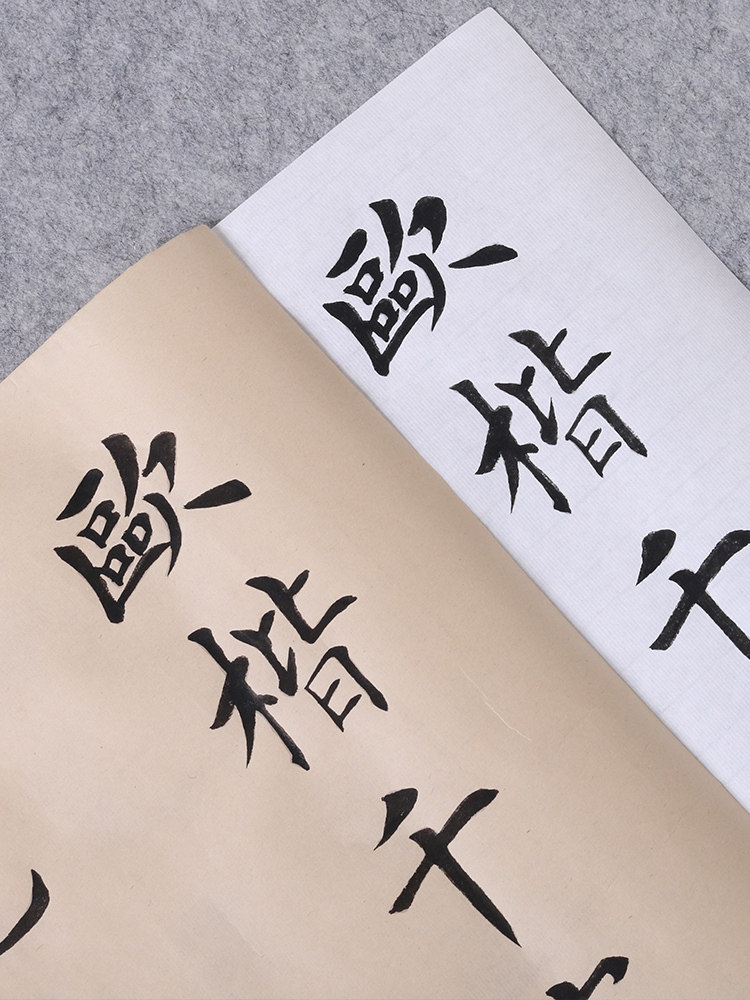 歐楷千
歐楷千